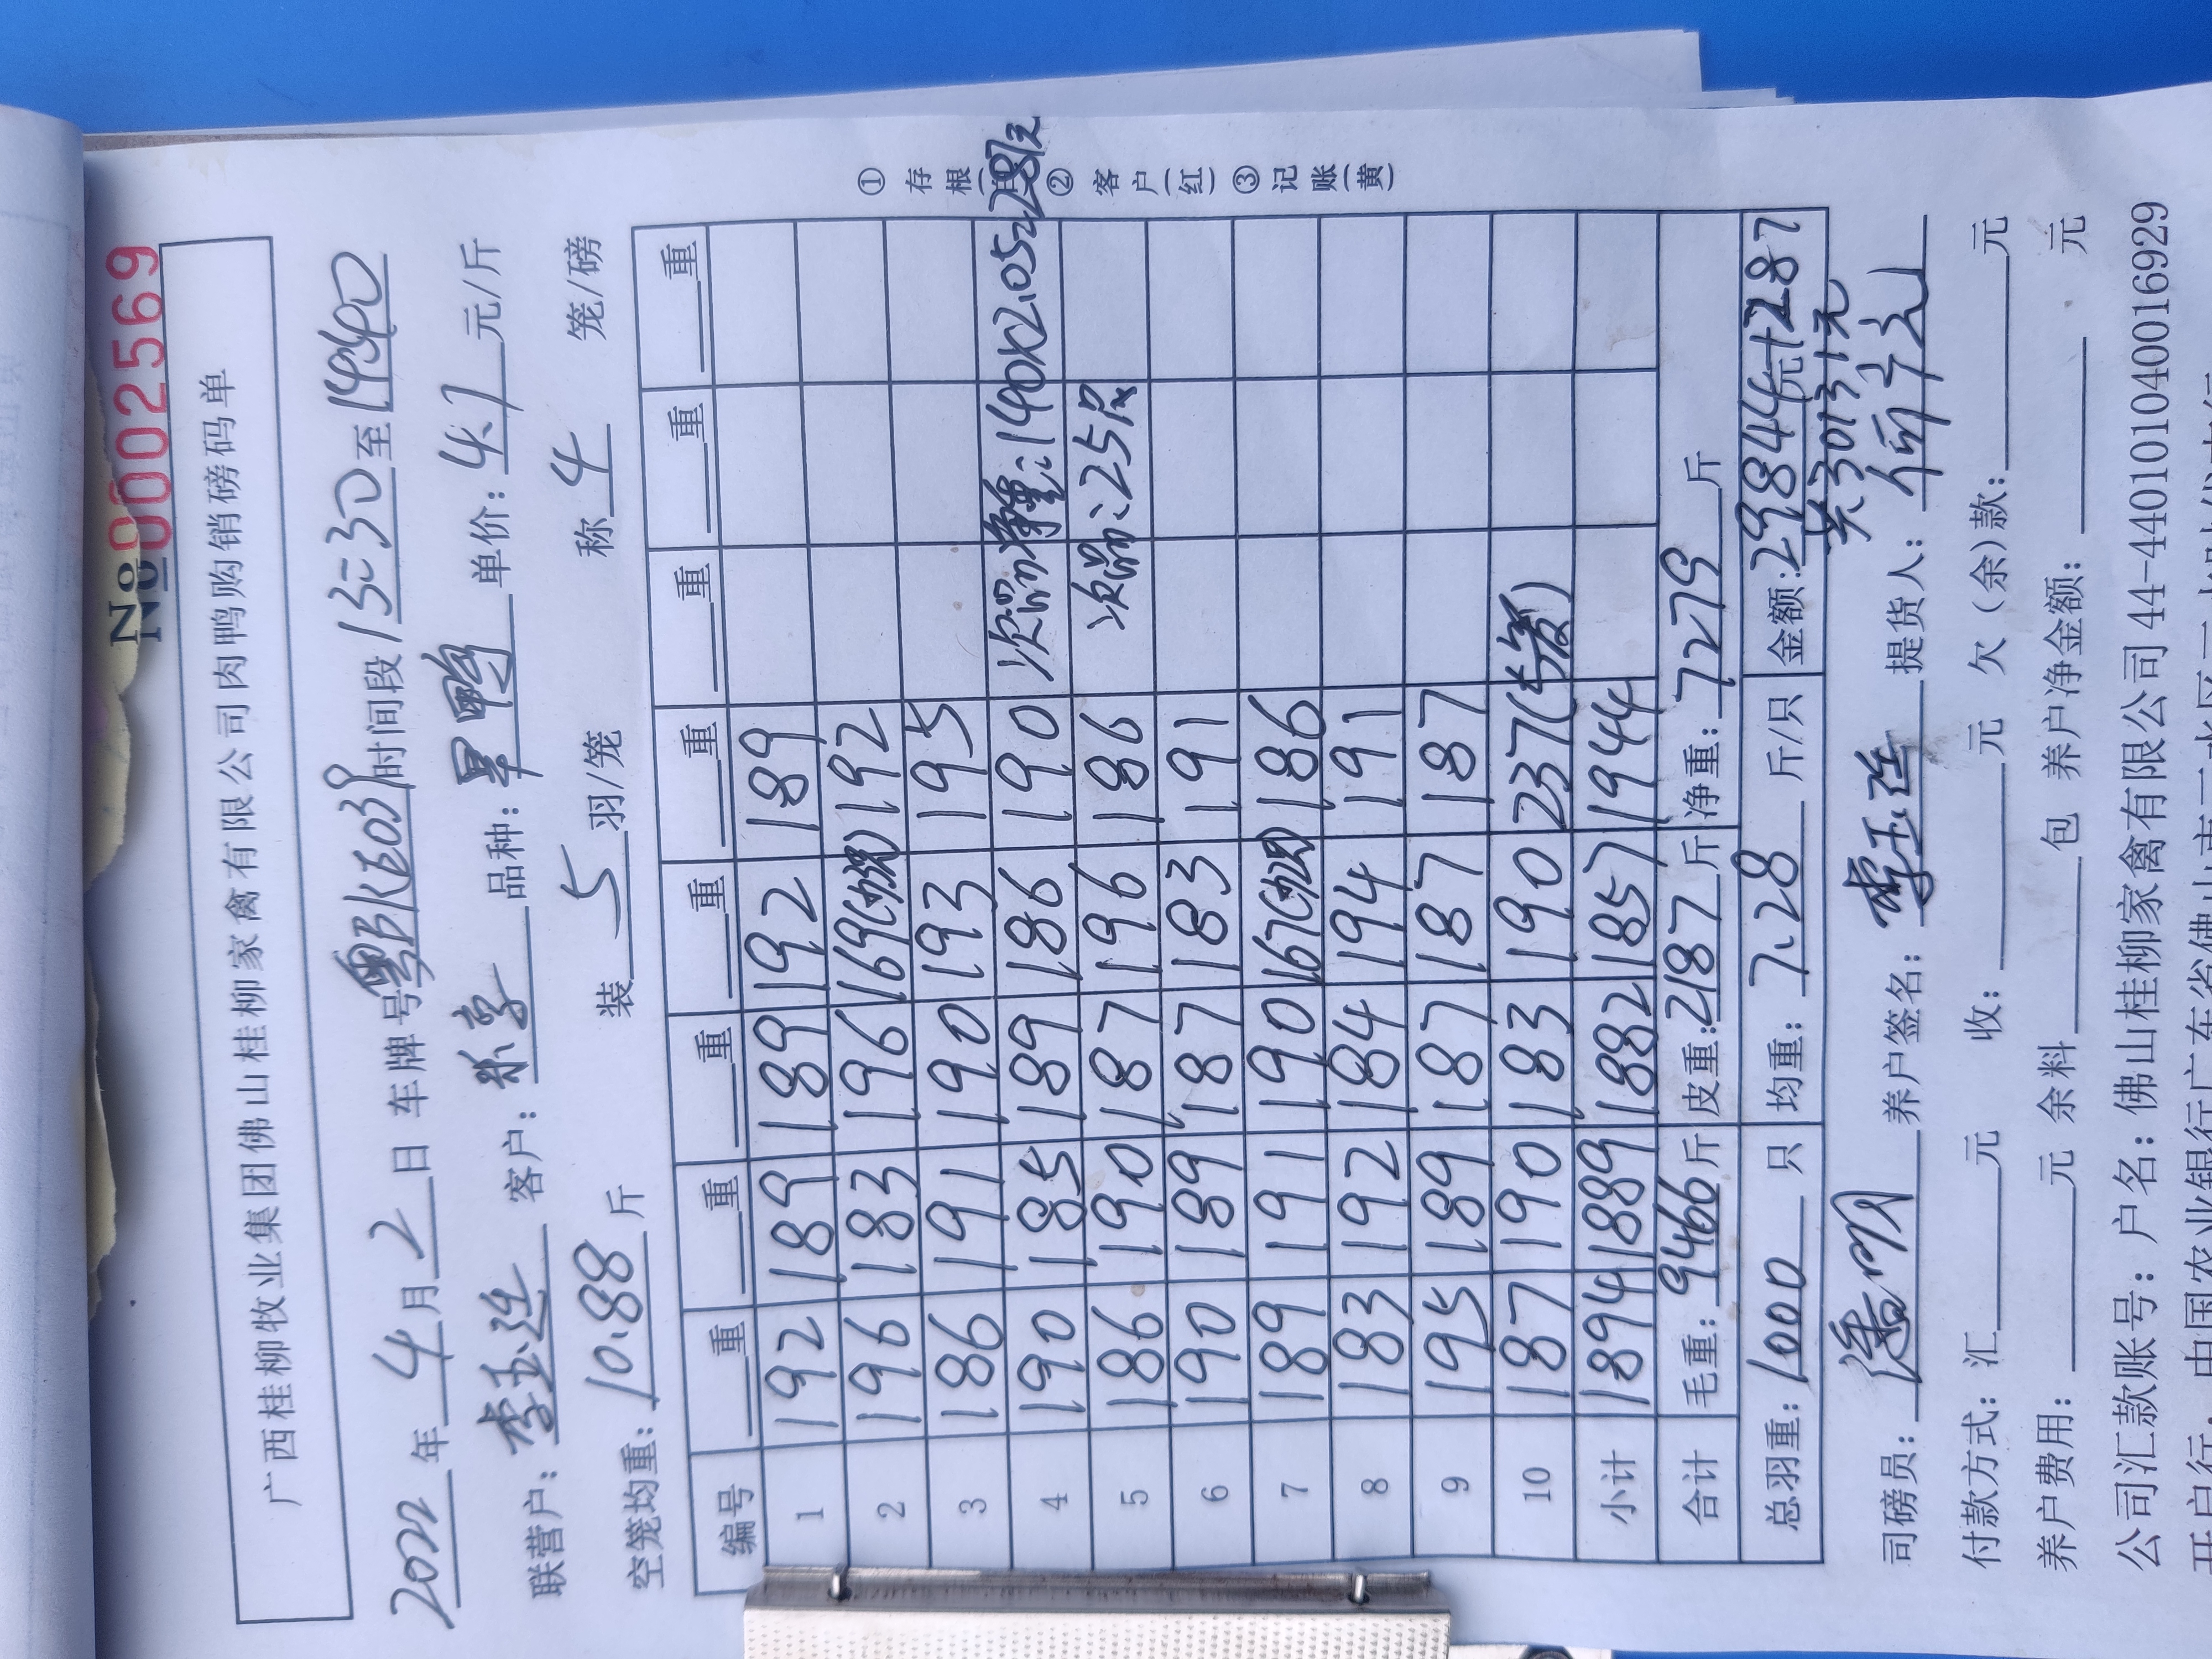 №0002569
广西桂柳牧业集团佛山桂柳家禽有限公司肉鸭购销磅码单
2022年4月2日 车牌号粤 时间段13:30至1440
联营户:李玉连 客户: 品种:旱鸭 单价:4.1元/斤
空笼均重:10.88斤 装5羽/笼 称4笼/磅
编号 重 重 重 重 重 重 重 重
1 192 189 189 192 189
2 196 183 196 169 192
3 186 191 190 193 195
4 190 185 189 186 190 次品净重:140×2.05=287元
5 186 190 187 196 186 次品:25只
6 190 189 187 183 191
7 189 191 190 167 186
8 183 192 184 194 191
9 195 189 187 187 187
10 187 190 183 190 237
小计 1894 1889 1882 1857 1944
合计 毛重:9466斤 皮重:2187斤 净重:7279斤
总羽重:1000只 均重:7.28斤/只 金额:29844元+287
共30131元
司磅员:潘明 养户签名:李玉连 提货人:
付款方式:汇 元 收: 元 欠(余)款: 元
养户费用: 元 余料 包 养户净金额: 元
公司汇款账号:户名:佛山桂柳家禽有限公司44-440101040016929
①存根 ②客户(红) ③记账(黄)